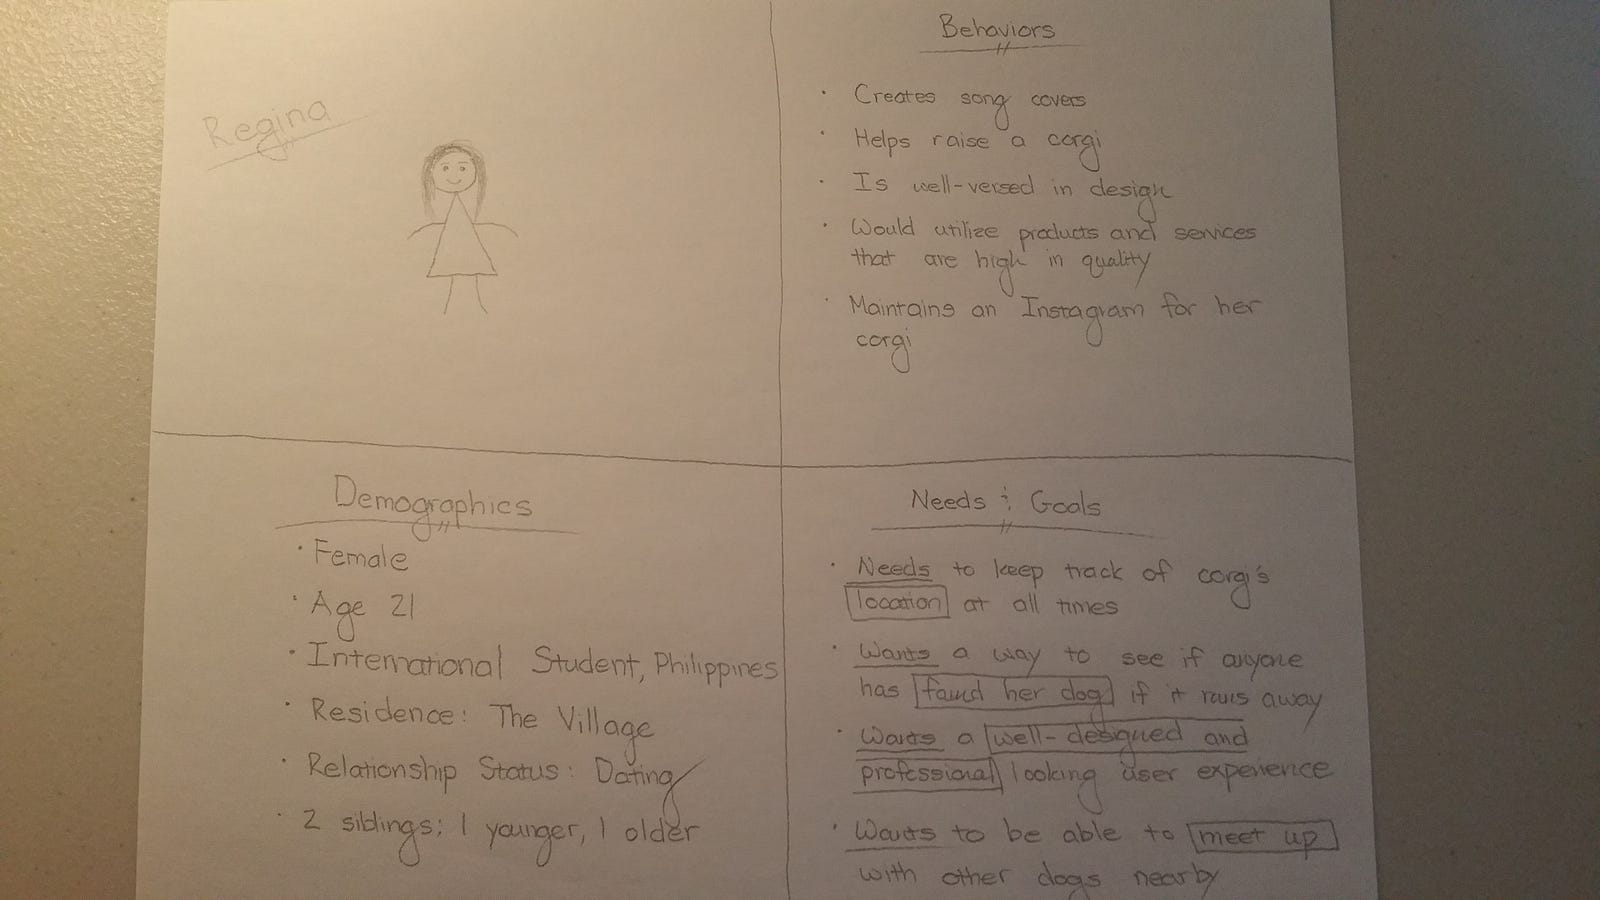 Regina
Behaviors
· Creates song covers
· Helps raise a corgi
· Is well-versed in design
· Would utilize products and services
that are high in quality
· Maintains an Instagram for her
corgi
Demographics
· Female
· Age 21
· International Student, Philippines
· Residence: The Village
· Relationship Status: Dating
· 2 siblings; 1 younger, 1 older
Needs & Goals
· Needs to keep track of corgi's
location at all times
· Wants a way to see if anyone
has found her dog if it runs away
· Wants a well-designed and
professional looking user experience
· Wants to be able to meet up
with other dogs nearby